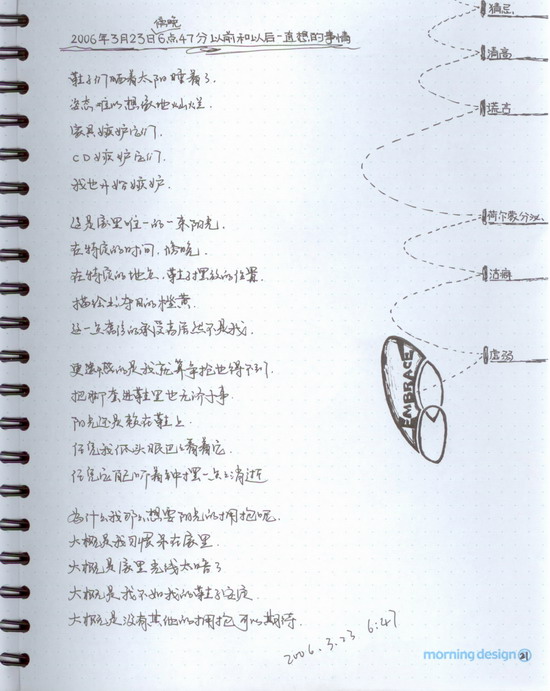 傍晚
2006年3月23日6点47分以前和以后一直想的事情
鞋子们晒着太阳睡着了.
姿态难以想象地灿烂.
家具嫉妒它们.
CD嫉妒它们.
我也开始嫉妒.
这是屋里唯一的一束阳光.
在特定的时间,傍晚.
在特定的地点,鞋子摆放的位置.
描绘出夺目的橙黄.
这一点幸福的承受者居然不是我.
更潦倒的是我就算争抢也得不到.
把脚塞进鞋里也无济于事.
阳光还是赖在鞋上.
任凭我低头眼巴巴看着它.
任凭它和听着钟摆一点点消逝
为什么我那么想要阳光的拥抱呢.
大概是我习惯呆在屋里.
大概是屋里光线太暗了
大概是我不如我的鞋子安定.
大概是没有其他的拥抱可以期待.
2006.3.23 6:47
猜忌.
清高
荷尔蒙分泌.
洁癖
虚弱
EMBRACE
morning design 21